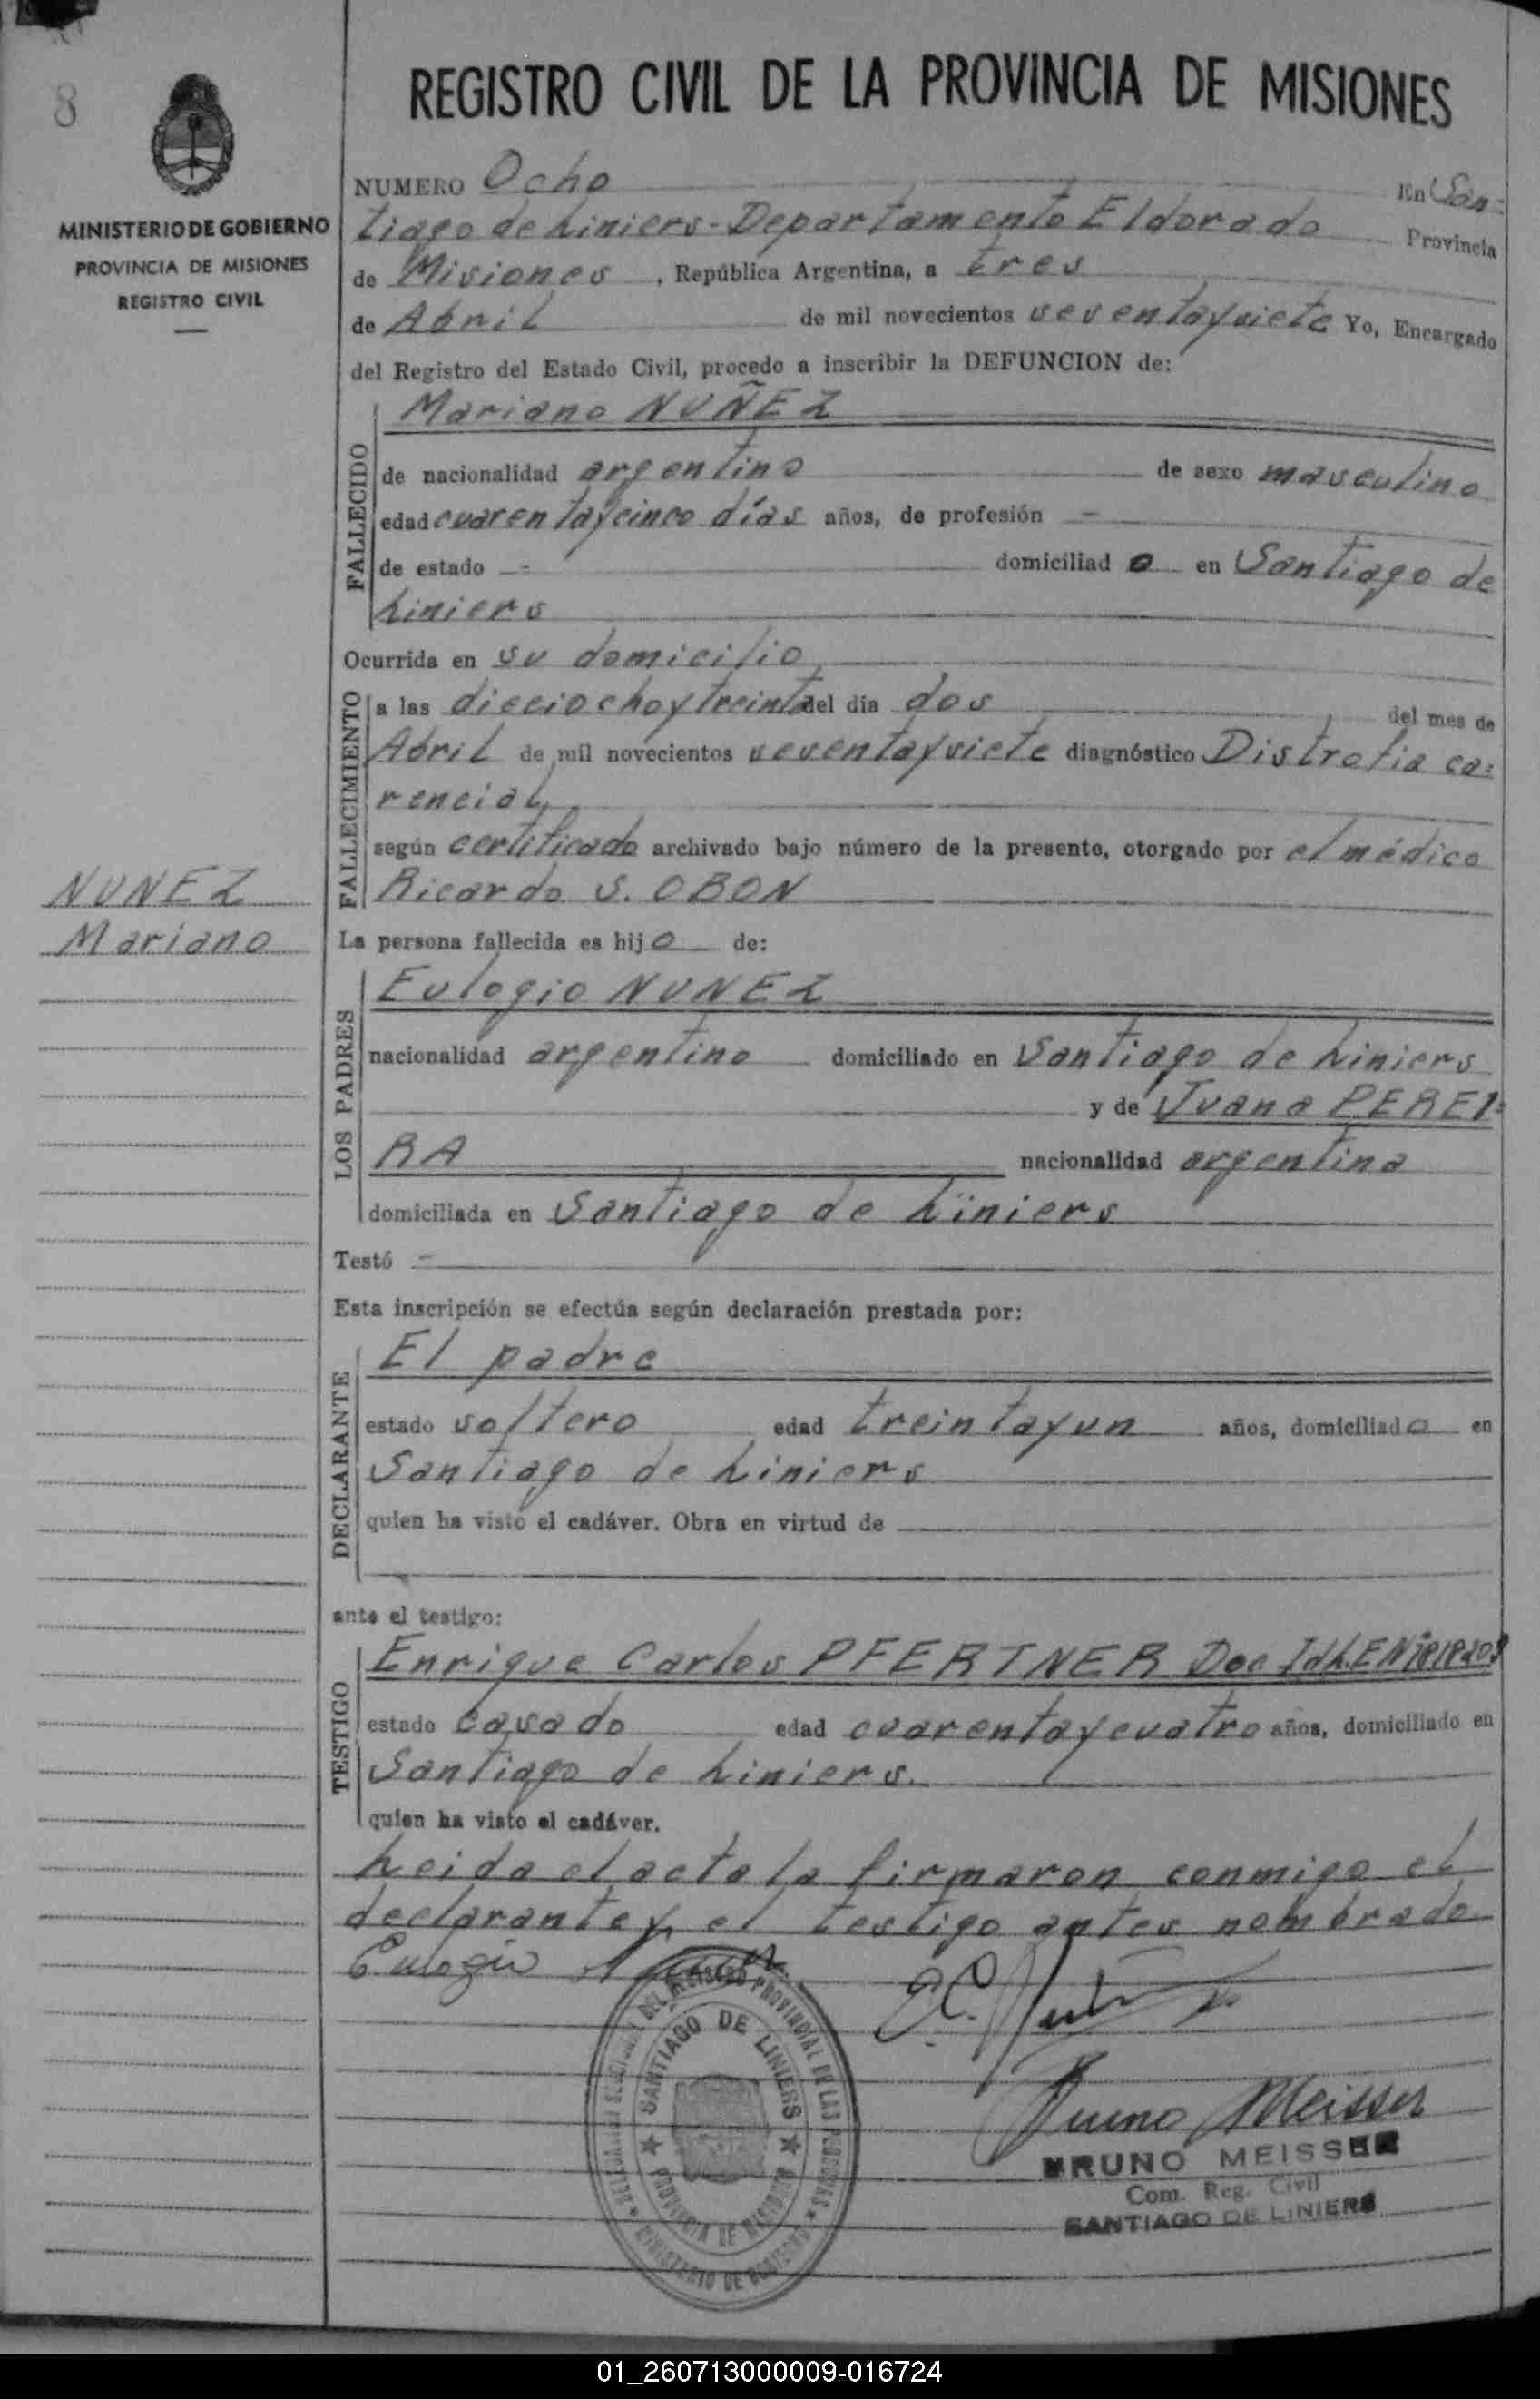 8
REGISTRO CIVIL DE LA PROVINCIA DE MISIONES
MINISTERIO DE GOBIERNO
PROVINCIA DE MISIONES
REGISTRO CIVIL
NUMERO Ocho En San=
tiago de Liniers-Departamento Eldorado Provincia
de Misiones, República Argentina, a tres
de Abril de mil novecientos sesentaysiete Yo, Encargado
del Registro del Estado Civil, procedo a inscribir la DEFUNCION de:
FALLECIDO
Mariano NUÑEZ
de nacionalidad argentino de sexo masculino
edad cuarentaycinco días años, de profesión -
de estado - domiciliad o en Santiago de
Liniers
Ocurrida en su domicilio
FALLECIMIENTO
a las dieciochoytreinta del día dos del mes de
Abril de mil novecientos sesentaysiete diagnóstico Distrofia ca=
rencial,
según certificado archivado bajo número de la presente, otorgado por el médico
Ricardo S. OBON
NUNEZ
Mariano
La persona fallecida es hijo de:
LOS PADRES
Eulogio NUNEZ
nacionalidad argentino domiciliado en Santiago de Liniers
y de Juana PEREI=
RA nacionalidad argentina
domiciliada en Santiago de Liniers
Testó -
Esta inscripción se efectúa según declaración prestada por:
DECLARANTE
El padre
estado soltero edad treintayun años, domiciliado en
Santiago de Liniers
quien ha visto el cadáver. Obra en virtud de
ante el testigo:
TESTIGO
Enrique Carlos PFERTNER Doc Id L.E Nº
estado casado edad cuarentaycuatro años, domiciliado en
Santiago de Liniers.
quien ha visto el cadáver.
Leida el acta la firmaron conmigo el
declarante y el testigo antes nombrado
Eulogio
SANTIAGO DE LINIERS
PROVINCIA DE MISIONES
DEL REGISTRO PROVINCIAL DE LAS PERSONAS
MINISTERIO DE GOBIERNO
Bruno Meisser
BRUNO MEISSER
Com. Reg. Civil
SANTIAGO DE LINIERS
01_260713000009-016724